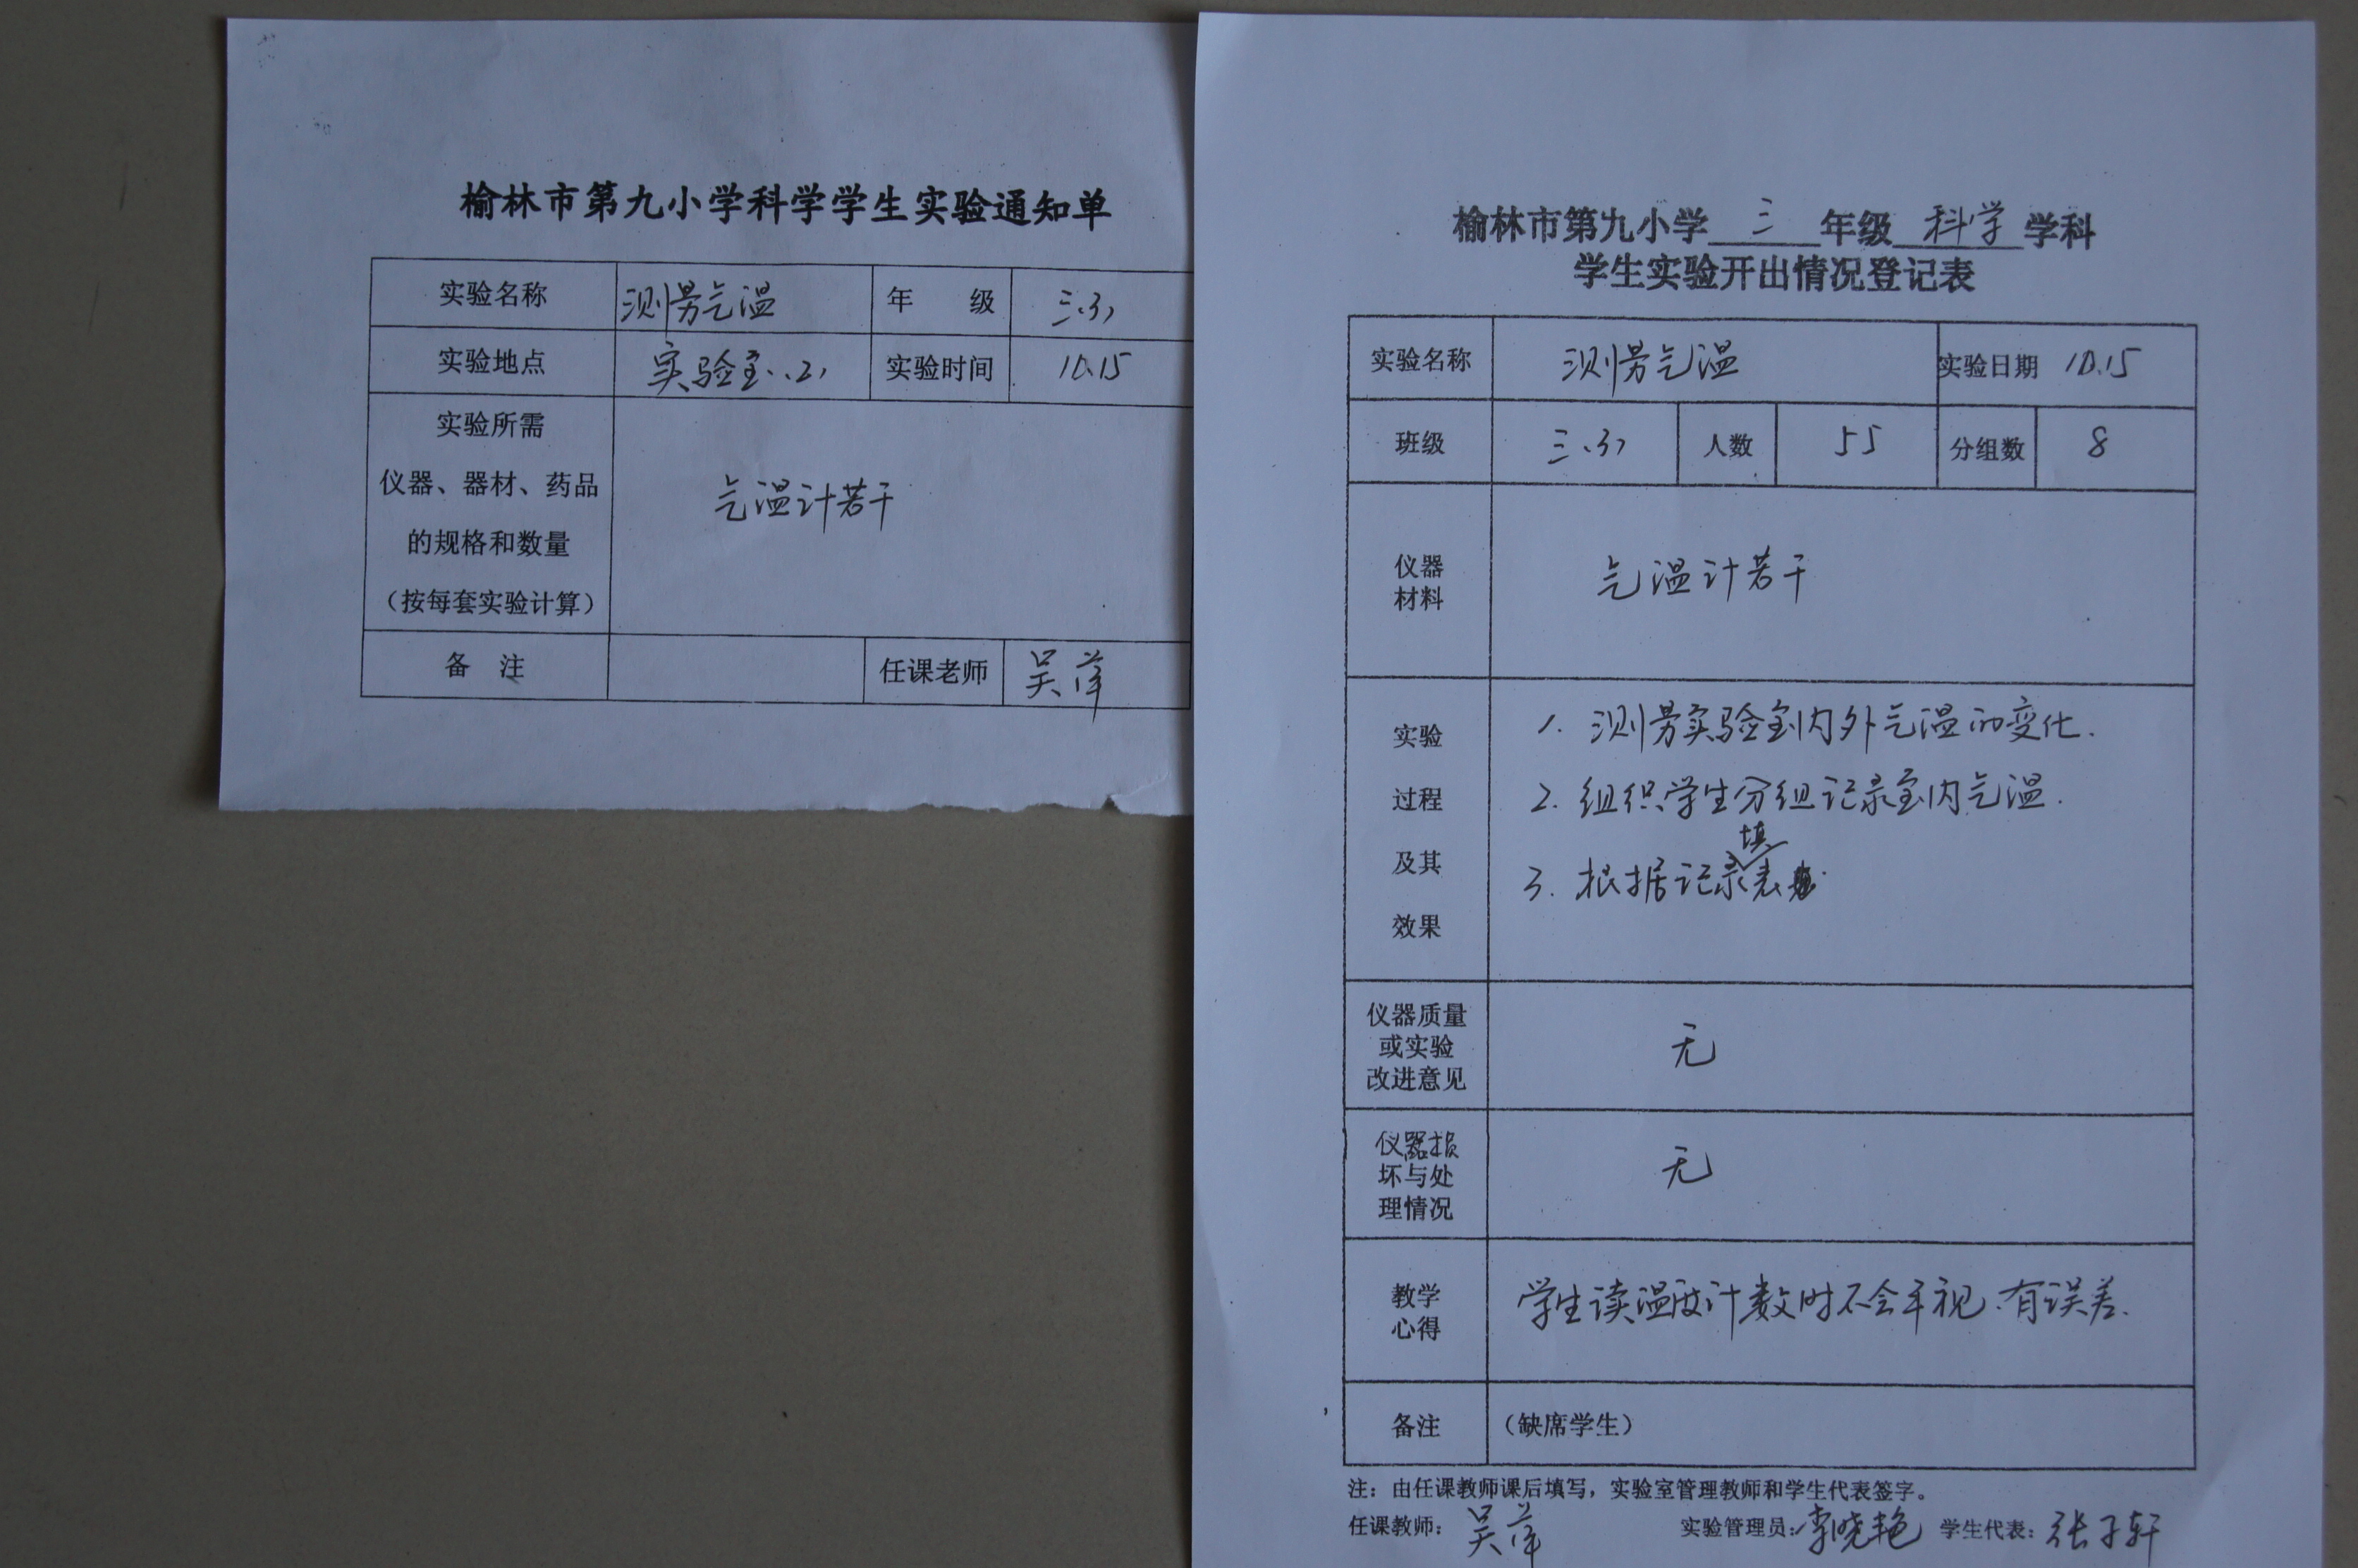 榆林市第九小学科学学生实验通知单
实验名称 测量气温 年 级 三、(3)
实验地点 实验室、(2) 实验时间 10.15
实验所需
仪器、器材、药品
的规格和数量
(按每套实验计算)
气温计若干
备 注 任课老师 吴萍
榆林市第九小学 三 年级 科学 学科
学生实验开出情况登记表
实验名称 测量气温 实验日期 10.15
班级 三、(3) 人数 55 分组数 8
仪器
材料
气温计若干
实验
过程
及其
效果
1. 测量实验室内外气温的变化.
2. 组织学生分组记录室内气温.
3. 根据记录填表
仪器质量
或实验
改进意见
无
仪器损
坏与处
理情况
无
教学
心得
学生读温度计数时不会平视、有误差.
备注 (缺席学生)
注:由任课教师课后填写,实验室管理教师和学生代表签字。
任课教师: 吴萍 实验管理员: 李晓艳 学生代表: 张子轩